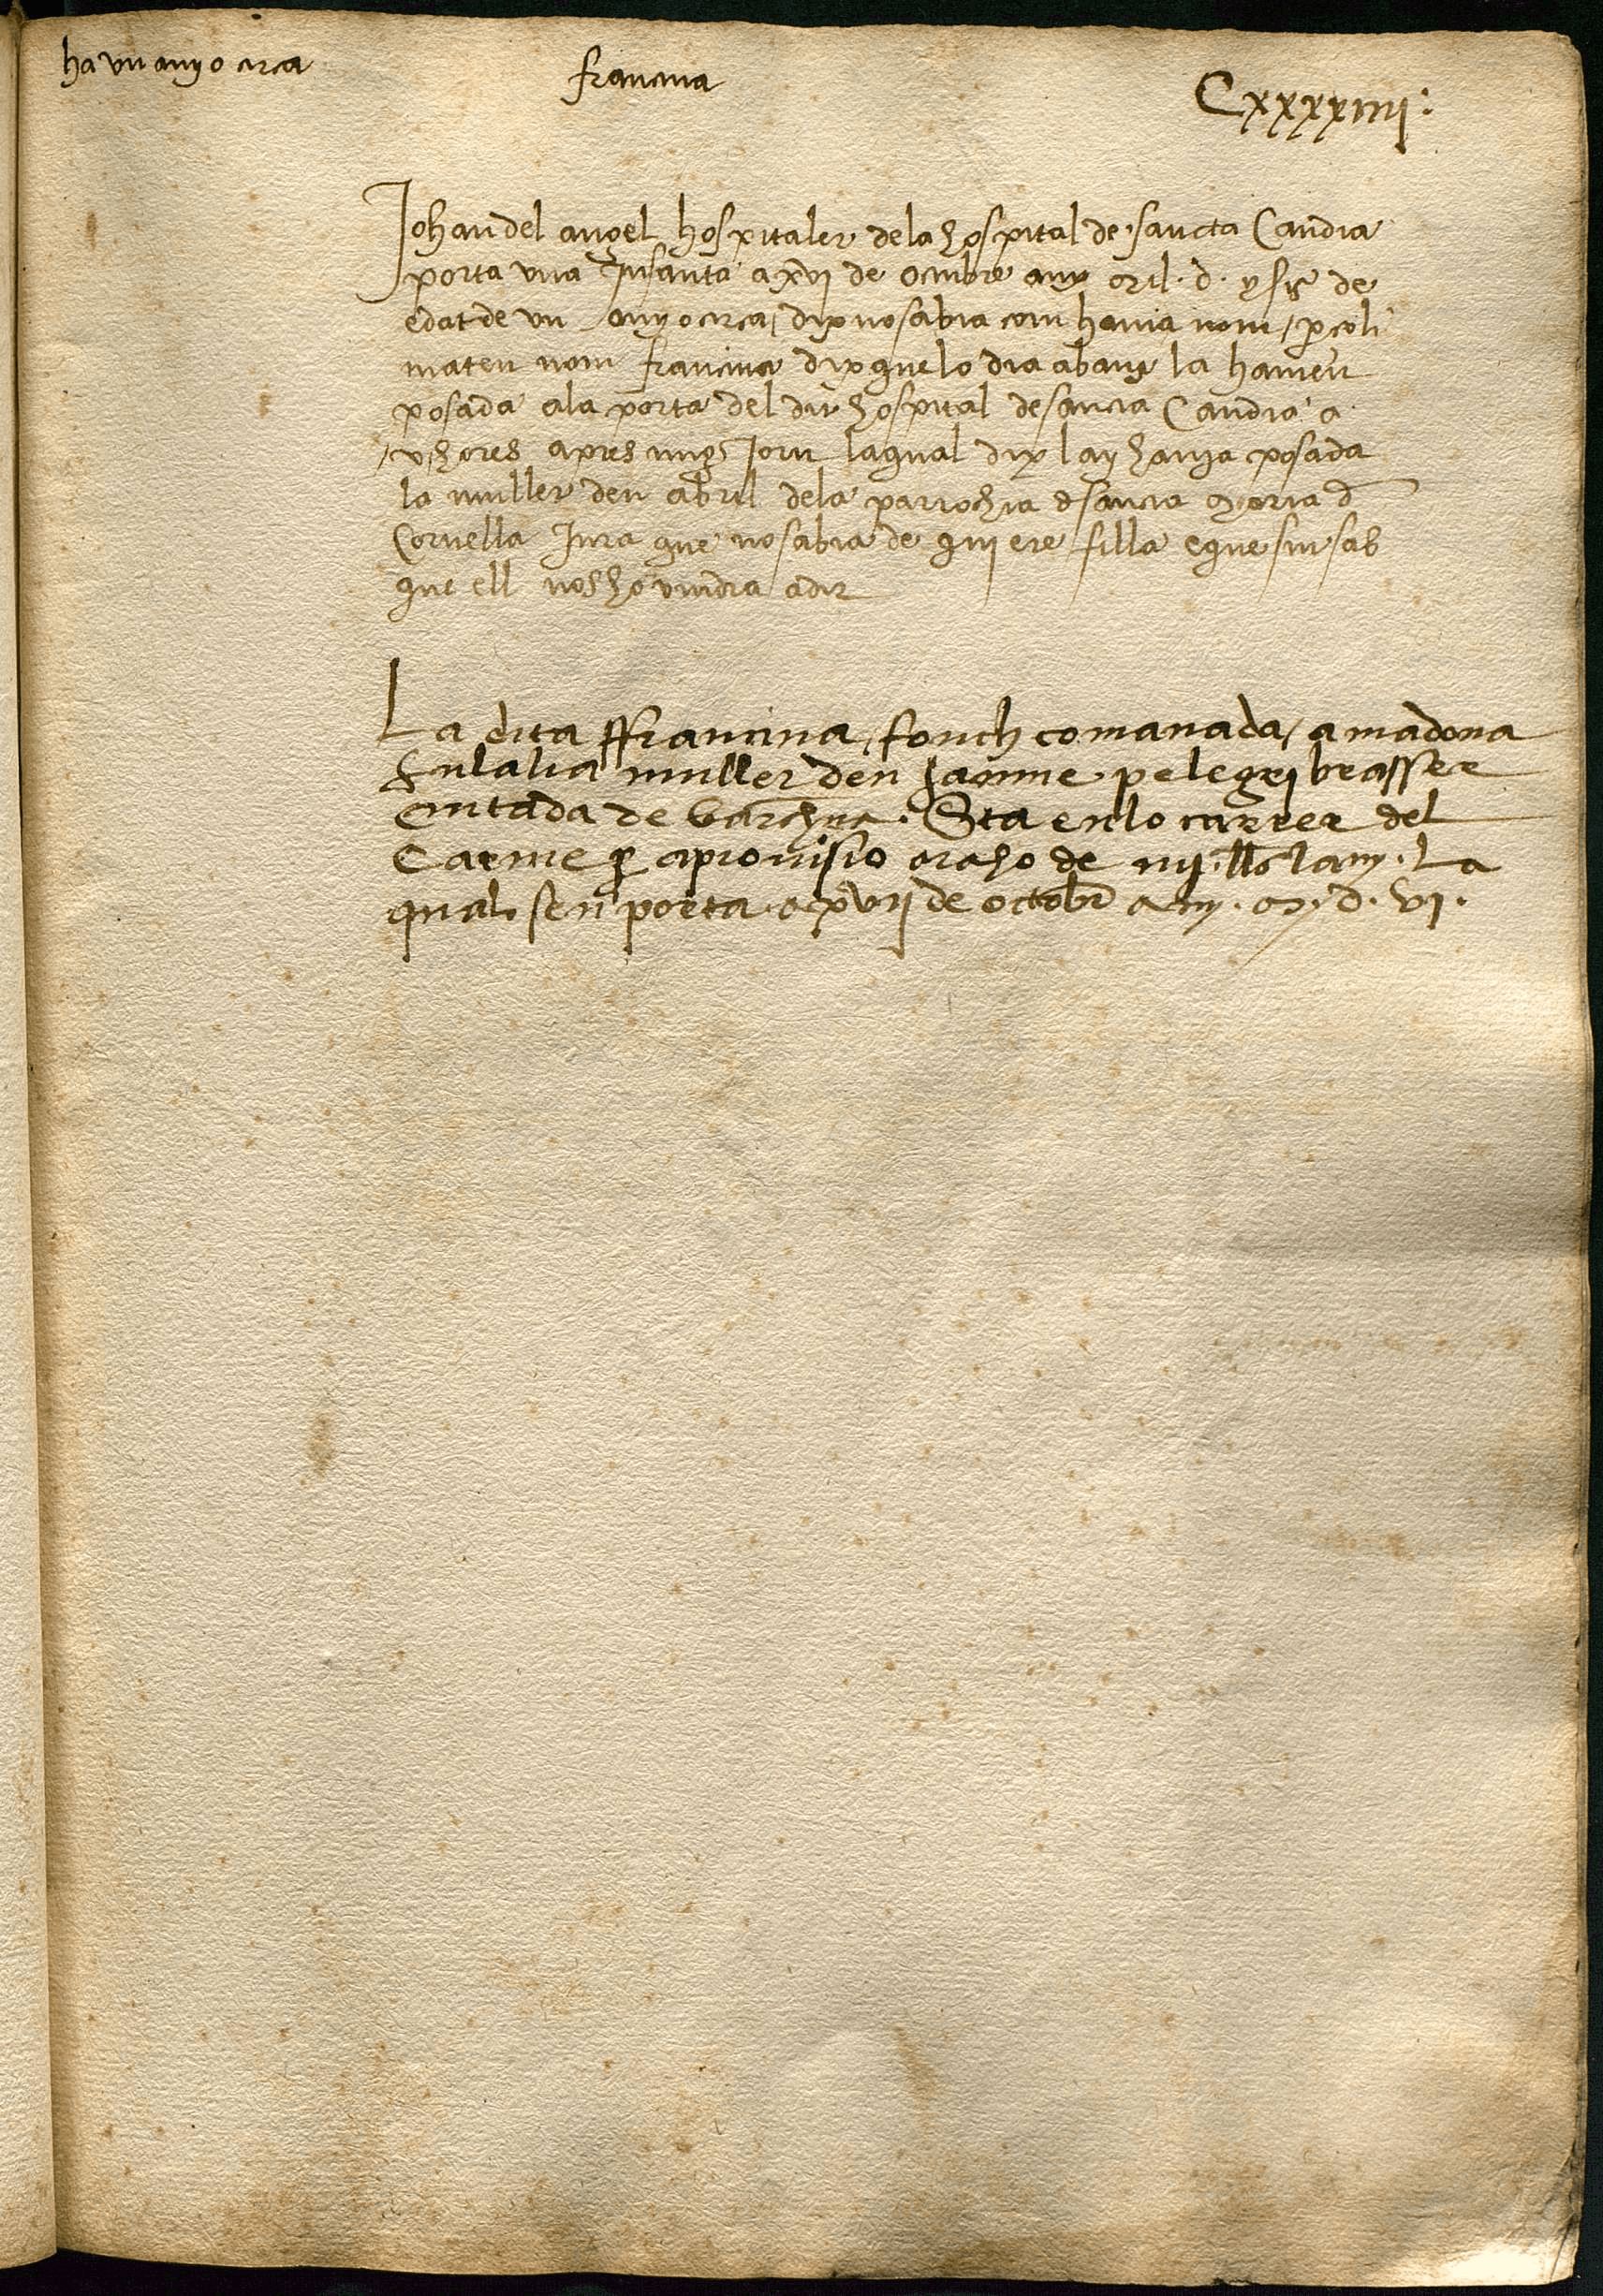 ha vn any o circa
francina
Cxxxxiiij:
Johan del angel hospitaler dela hospital de sancta Candia
porta vna Infanta a xvj de octubre any Mil. d. y sis de
edat de vn any o circa, dix no sabia com hauia nom, per co li
materen nom francina dix que lo dia abans la hauien
posada ala porta del dit hospital de sancta Candia a
v hores apres mig Jorn laqual dix lay hauia posada
la muller den abril dela parrochia de sancta Maria d
Cornella Jura que no sabia de qui ere filla e que sin sab
que ell nos ho vindra a dir
La dita ffrancina, fonch comanada, a madona
Eulalia muller den Jaume pelegri brasser
Ciutada de barchna. Sta en lo carrer del
Carme per a prouisio a raho de iiij. lls lany. La
qual sen porta a xvij de octobre any. M. d. vj.